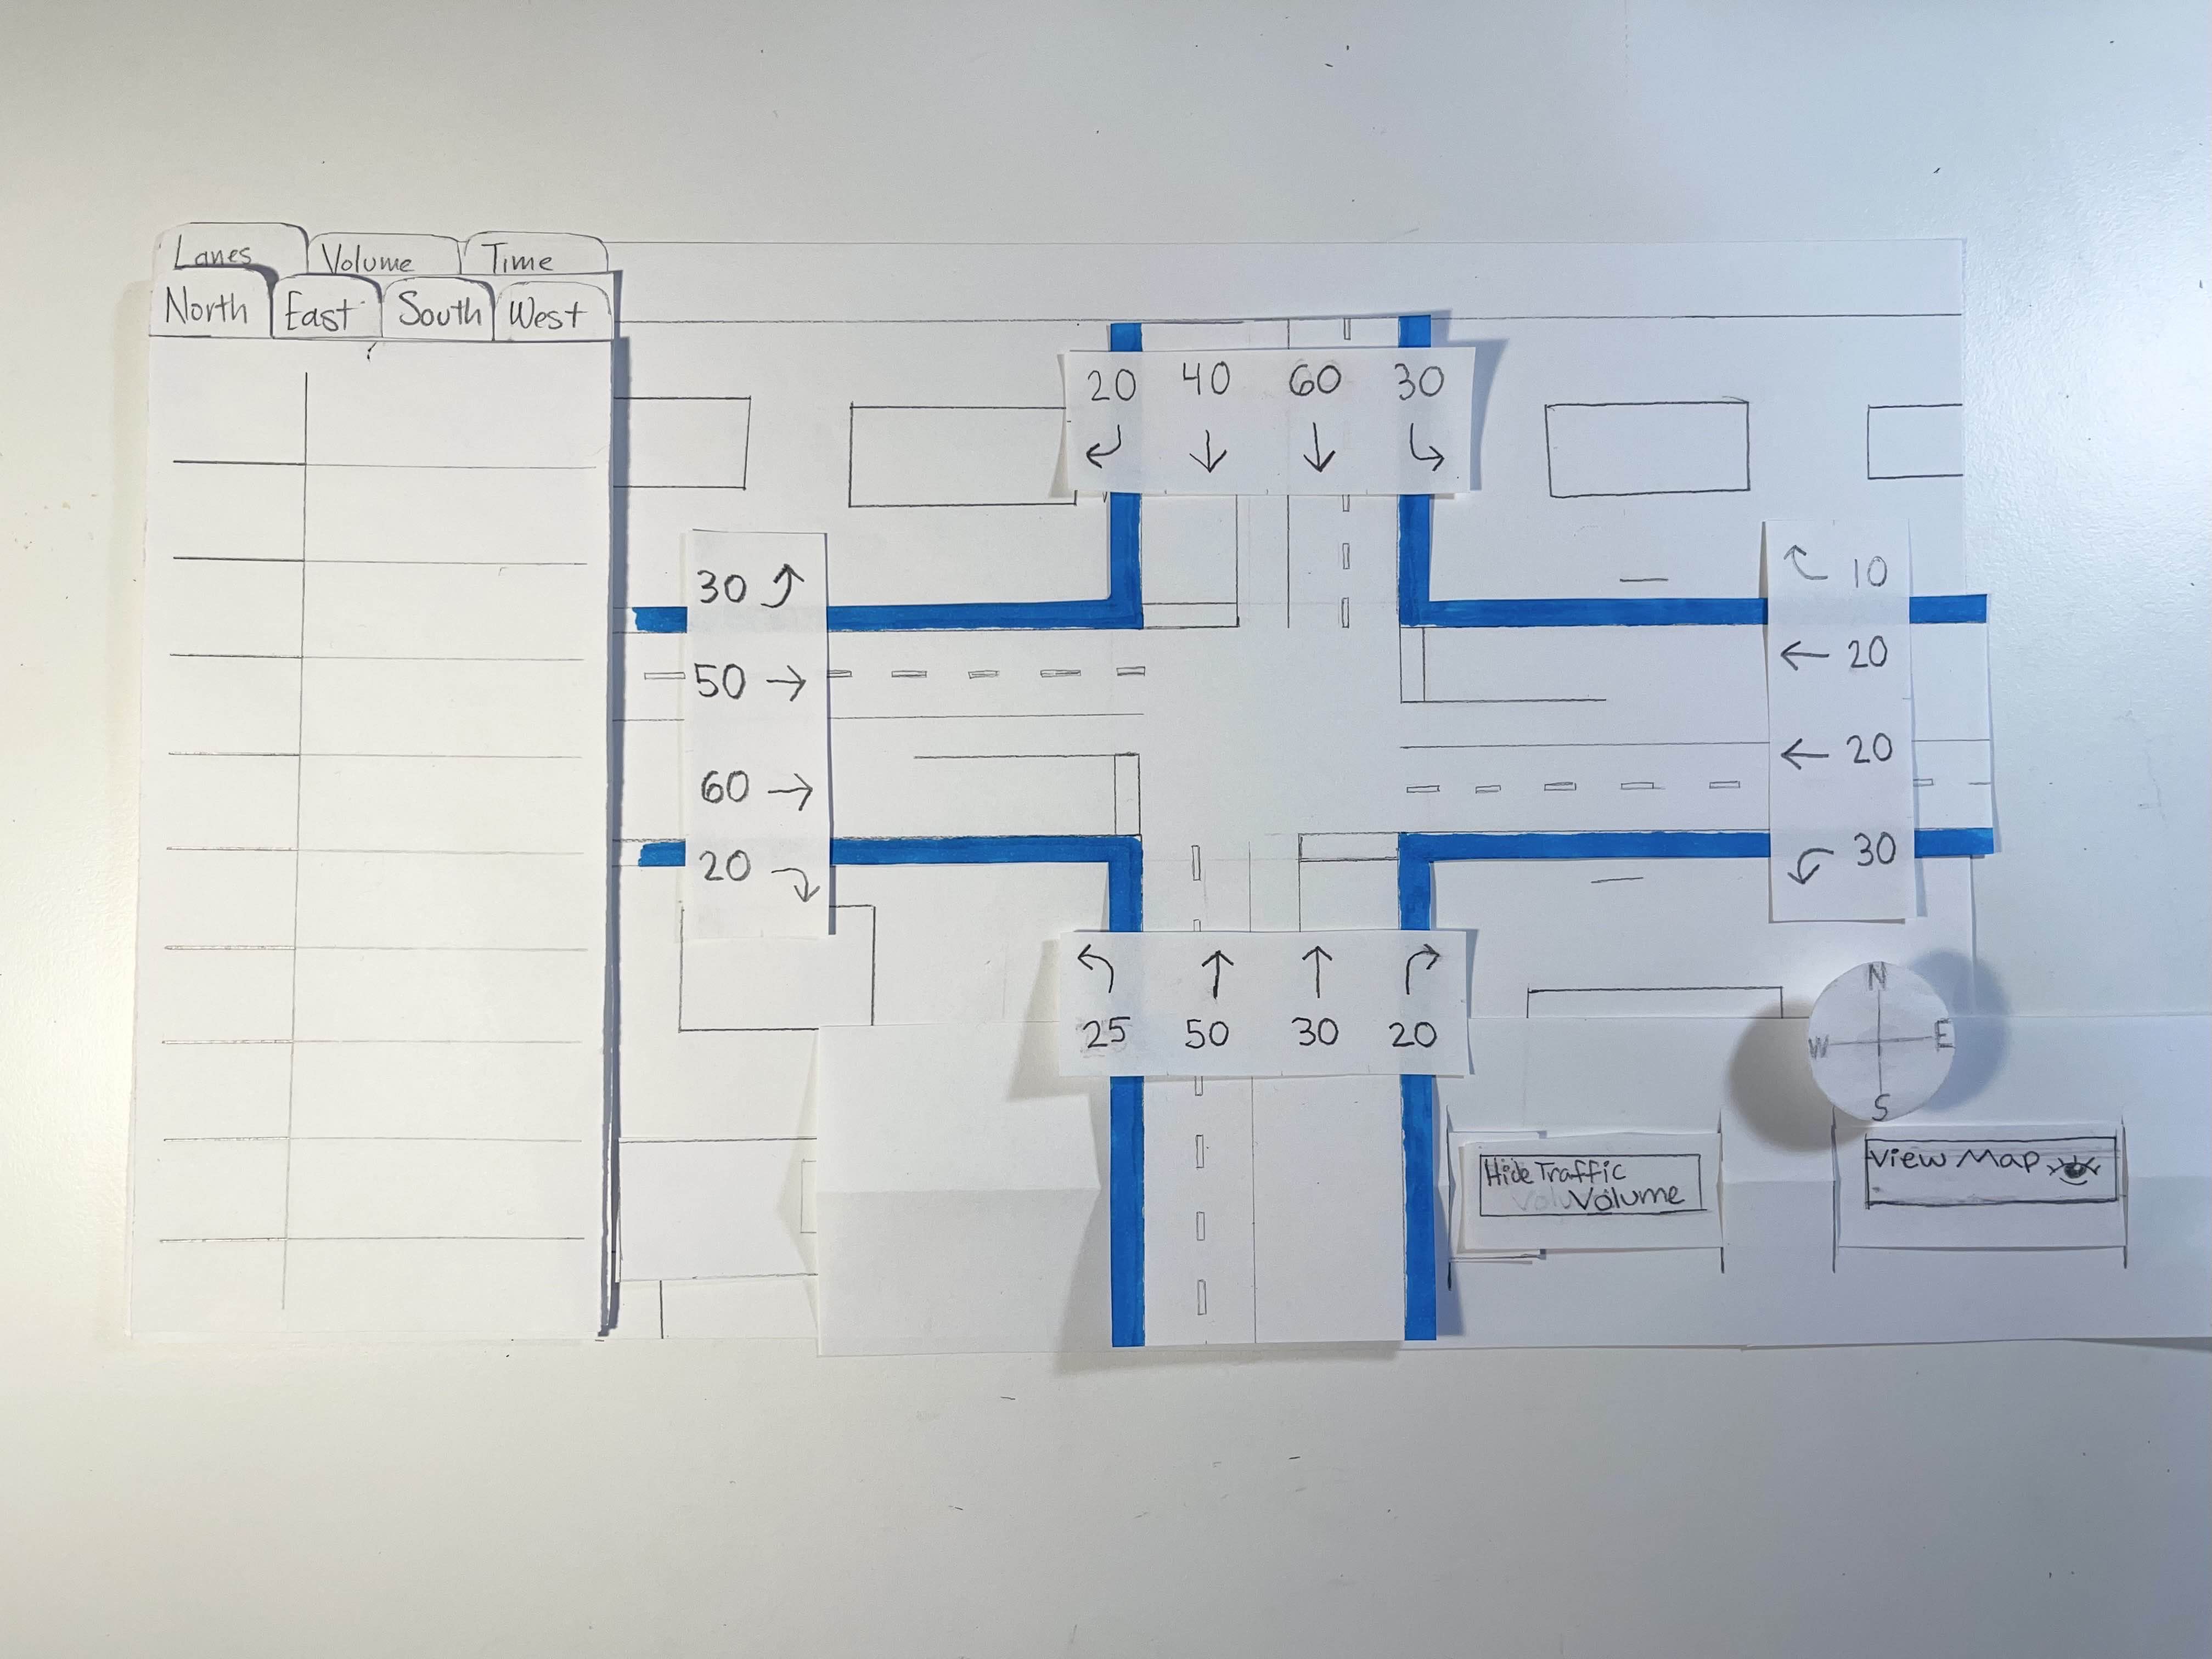 Lanes Volume Time
North East South West
20 40 60 30
30
50
60
20
10
20
20
30
25 50 30 20
N
W E
S
Hide Traffic
Volume
View Map